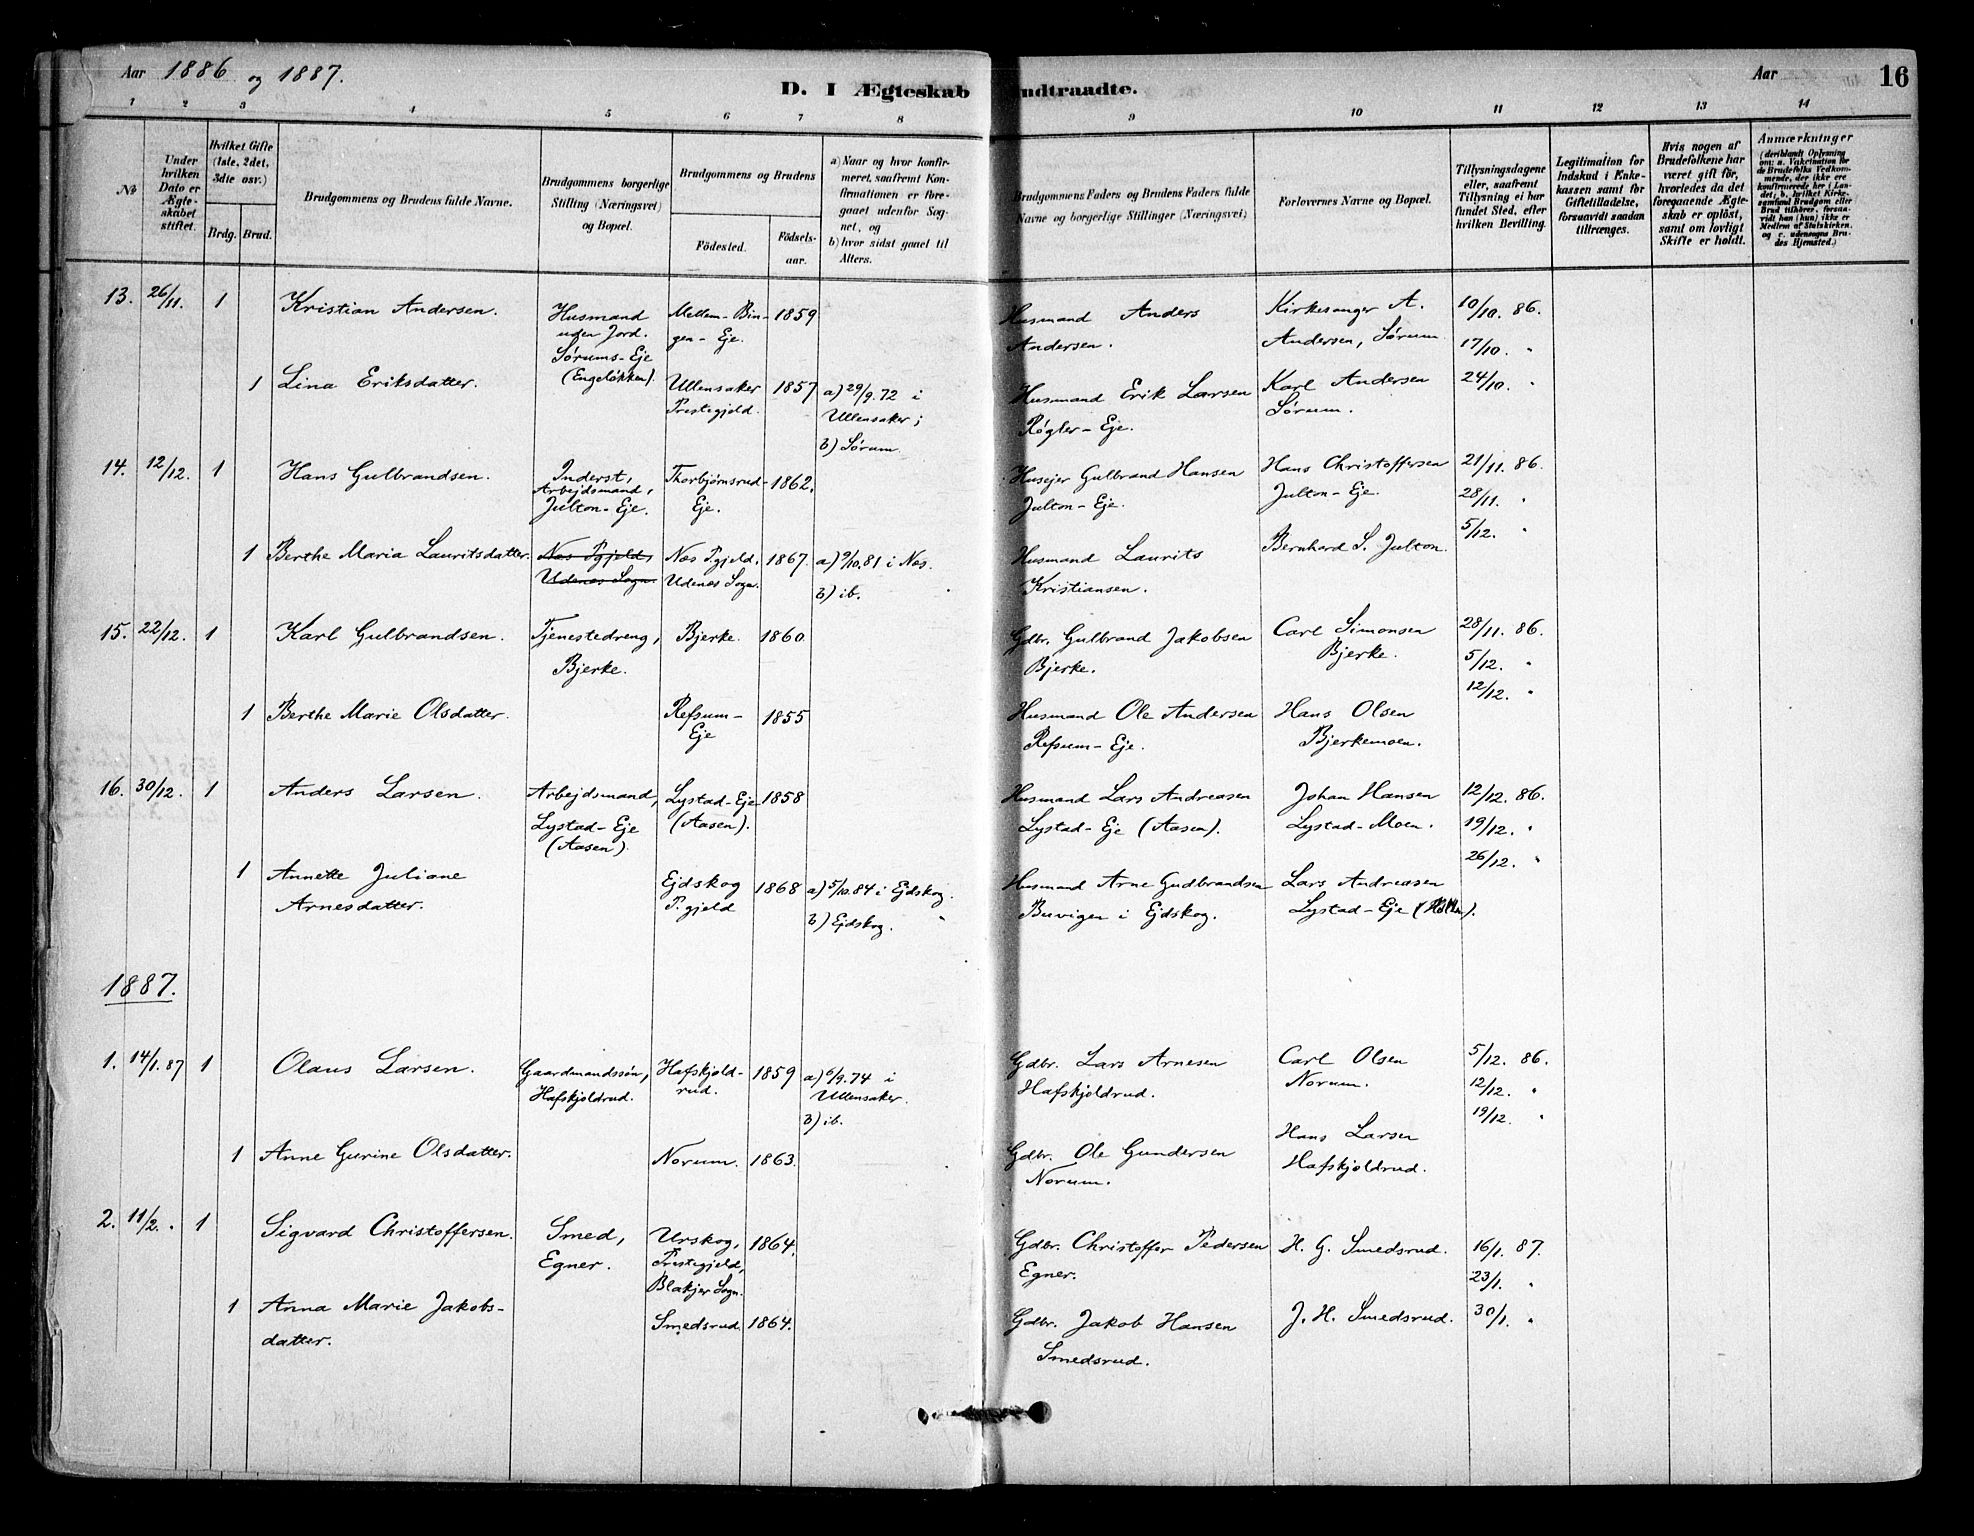 Aar 1886 og 1887.
D. I Ægteskab Indtraadte.
Aar
16
1 2 3 4 5 6 7 8 9 10 11 12 13 14
No
Under hvilken Dato er Ægteskabet stiftet.
Hvilket Gifte (1ste, 2det, 3die osv.)
Brdg. Brud.
Brudgommens og Brudens fulde Navne.
Brudgommens borgerlige Stilling (Næringsvei) og Bopæl.
Brudgommens og Brudens
Födested.
Födselsaar.
a) Naar og hvor konfirmeret, saafremt Konfirmationen er foregaaet udenför Sognet, og
b) hvor sidst gaaet til Alters.
Brudgommens Faders og Brudens Faders fulde Navne og borgerlige Stillinger (Næringsvei)
Forlovernes Navne og Bopæl.
Tillysningsdagene eller, saafremt Tillysning ei har fundet Sted, efter hvilken Bevilling.
Legitimation for Indskud i Enkekassen samt for Giftetilladelse, forsaavidt saadan tiltrænges.
Hvis nogen af Brudefolkene har været gift för, hvorledes da det foregaaende Ægteskab er oplöst, samt om lovligt Skifte er holdt.
Anmærkninger
(deriblandt Oplysning om: a. Vakcination for de Brudefolks Vedkommende, der ikke ere konfirmerede her i Landet; b. hvilket Kirkesamfund Brudgom eller Brud tilhörer, forsaavidt han (hun) ikke er Medlem af Statskirken, og c. udensogns Brudes Hjemsted.)
13. 26/11. 1 Kristian Andersen. Husmand uden Jord. Sørums-Eje (Engeløkken). Mellem-Bingen-Eje. 1859 Husmand Anders Andersen. Kirkesanger A. Andersen, Sørum 10/10. 86.
17/10. "
1 Lina Eriksdatter. Ullensaker Prestegjeld. 1857 a) 29/9. 72 i Ullensaker; b) Sørum. Husmand Erik Larsen Røgler-Eje. Karl Andersen Sørum. 24/10. "
14. 12/12. 1 Hans Gulbrandsen. Inderst, Arbejdsmand, Julton-Eje. Thorbjørnsrud-Eje. 1862. Husejer Gulbrand Hansen Julton-Eje. Hans Christoffersen Julton-Eje. 21/11. 86.
28/11. "
1 Berthe Maria Lauritsdatter. Nes Pgjeld, Udenes Sogn. Nes Pgjeld, Udenes Sogn. 1867. a) 9/10. 81 i Nes. b) ib. Husmand Laurits Kristiansen. Bernhard S. Julton. 5/12. "
15. 22/12. 1 Karl Gulbrandsen. Tjenestedreng, Bjerke. Bjerke. 1860 Gdbr. Gulbrand Jakobsen Bjerke. Carl Simonsen Bjerke. 28/11. 86.
5/12. "
12/12. "
1 Berthe Marie Olsdatter. Refsum-Eje 1855 Husmand Ole Andersen Refsum-Eje. Hans Olsen Bjerkemoen.
16. 30/12. 1 Anders Larsen. Arbejdsmand, Lystad-Eje (Aasen). Lystad-Eje (Aasen). 1858 Husmand Lars Andreasen Lystad-Eje (Aasen). Johan Hansen Lystad-Moen. 12/12. 86.
19/12. "
26/12. "
1 Annette Juliane Arnesdatter. Ejdskog P.gjeld 1868 a) 5/10. 84 i Ejdskog. b) Ejdskog. Husmand Arne Gudbrandsen Buvigen i Ejdskog. Lars Andreasen Lystad-Eje
1887.
1. 14/1. 87 1 Olaus Larsen. Gaardmandssøn, Hafskjoldrud. Hafskjoldrud. 1859 a) 6/9. 74 i Ullensaker. b) ib. Gdbr. Lars Arnesen Hafskjoldrud. Carl Olsen Norum. 5/12. 86.
12/12. "
19/12. "
1 Anne Gurine Olsdatter. Norum. 1863. Gdbr. Ole Gundersen Norum. Hans Larsen Hafskjoldrud.
2. 11/2. " 1 Sigvard Christoffersen. Smed, Egner. Urskog, Prestegjeld, Blakjer Sogn. 1864. Gdbr. Christoffer Pedersen Egner. H. G. Smedsrud. 16/1. 87.
23/1. "
1 Anna Marie Jakobsdatter. Smedsrud. 1864. Gdbr. Jakob Hansen Smedsrud. J. H. Smedsrud. 30/1. "